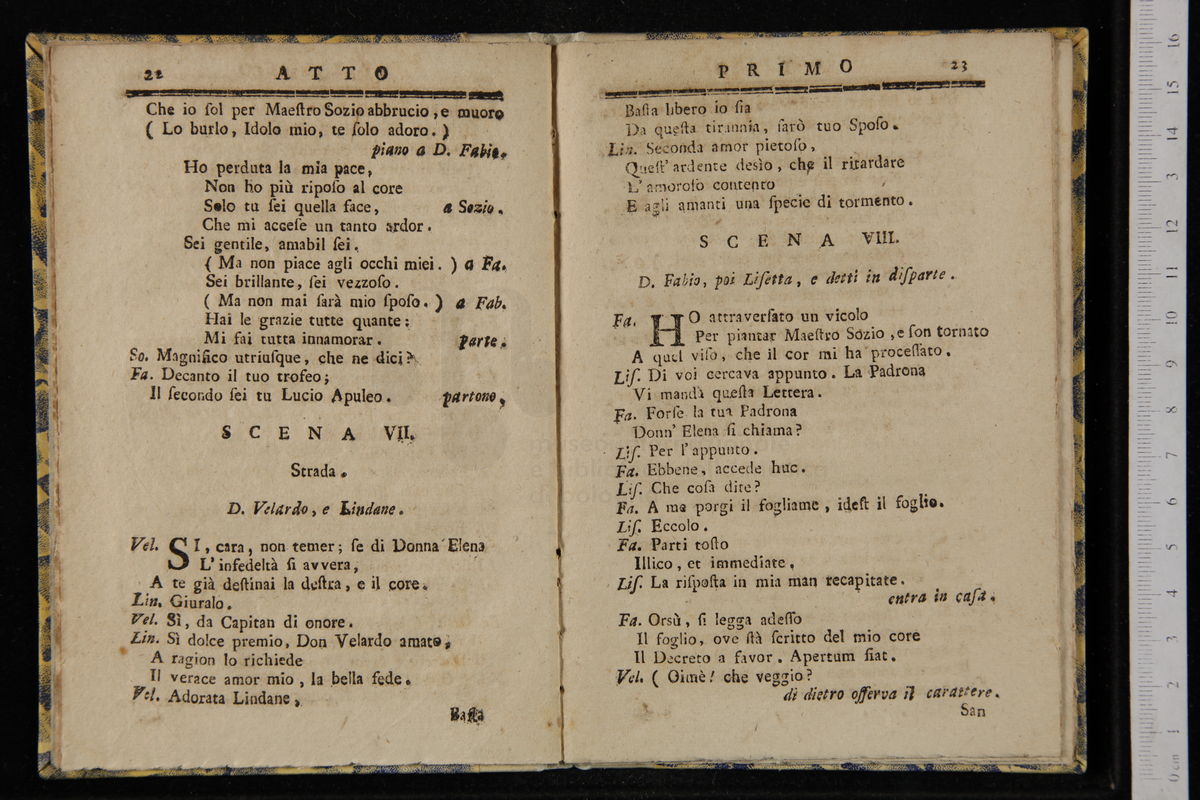 22 ATTO
Che io ſol per Maeſtro Sozio abbrucio, e muoro
( Lo burlo, Idolo mio, te ſolo adoro. )
piano a D. Fabio.
Ho perduta la mia pace,
Non ho più ripoſo al core
Solo tu ſei quella face, a Sozio.
Che mi acceſe un tanto ardor.
Sei gentile, amabil ſei.
( Ma non piace agli occhi miei. ) a Fa.
Sei brillante, ſei vezzoſo.
( Ma non mai ſarà mio ſpoſo. ) a Fab.
Hai le grazie tutte quante;
Mi fai tutta innamorar. parte.
So. Magnifico utriuſque, che ne dici?
Fa. Decanto il tuo trofeo;
Il ſecondo ſei tu Lucio Apuleo. partono.
SCENA VII.
Strada.
D. Velardo, e Lindane.
Vel. SI, cara, non temer; ſe di Donna Elena
L'infedeltà ſi avvera,
A te già deſtinai la deſtra, e il core.
Lin. Giuralo.
Vel. Sì, da Capitan di onore.
Lin. Sì dolce premio, Don Velardo amato,
A ragion lo richiede
Il verace amor mio, la bella fede.
Vel. Adorata Lindane,
Baſta
PRIMO 23
Baſta libero io ſia
Da queſta tirannia, ſarò tuo Spoſo.
Lin. Seconda amor pietoſo,
Queſt' ardente desìo, che il ritardare
L' amoroſo contento
E agli amanti una ſpecie di tormento.
SCENA VIII.
D. Fabio, poi Liſetta, e detti in diſparte.
Fa. HO attraverſato un vicolo
Per piantar Maeſtro Sozio, e ſon tornato
A quel viſo, che il cor mi ha proceſſato.
Liſ. Di voi cercava appunto. La Padrona
Vi mandà queſta Lettera.
Fa. Forſe la tua Padrona
Donn' Elena ſi chiama?
Liſ. Per l'appunto.
Fa. Ebbene, accede huc.
Liſ. Che coſa dite?
Fa. A me porgi il fogliame, ideſt il foglio.
Liſ. Eccolo.
Fa. Parti toſto
Illico, et immediate.
Liſ. La riſpoſta in mia man recapitate.
entra in caſa.
Fa. Orsù, ſi legga adeſſo
Il foglio, ove ſtà ſcritto del mio core
Il Decreto a favor. Apertum fiat.
Vel. ( Oimè! che veggio?
di dietro oſſerva il carattere.
San
16
15
3
12
11
10
9
8
7
6
5
4
3
2
1
0 cm